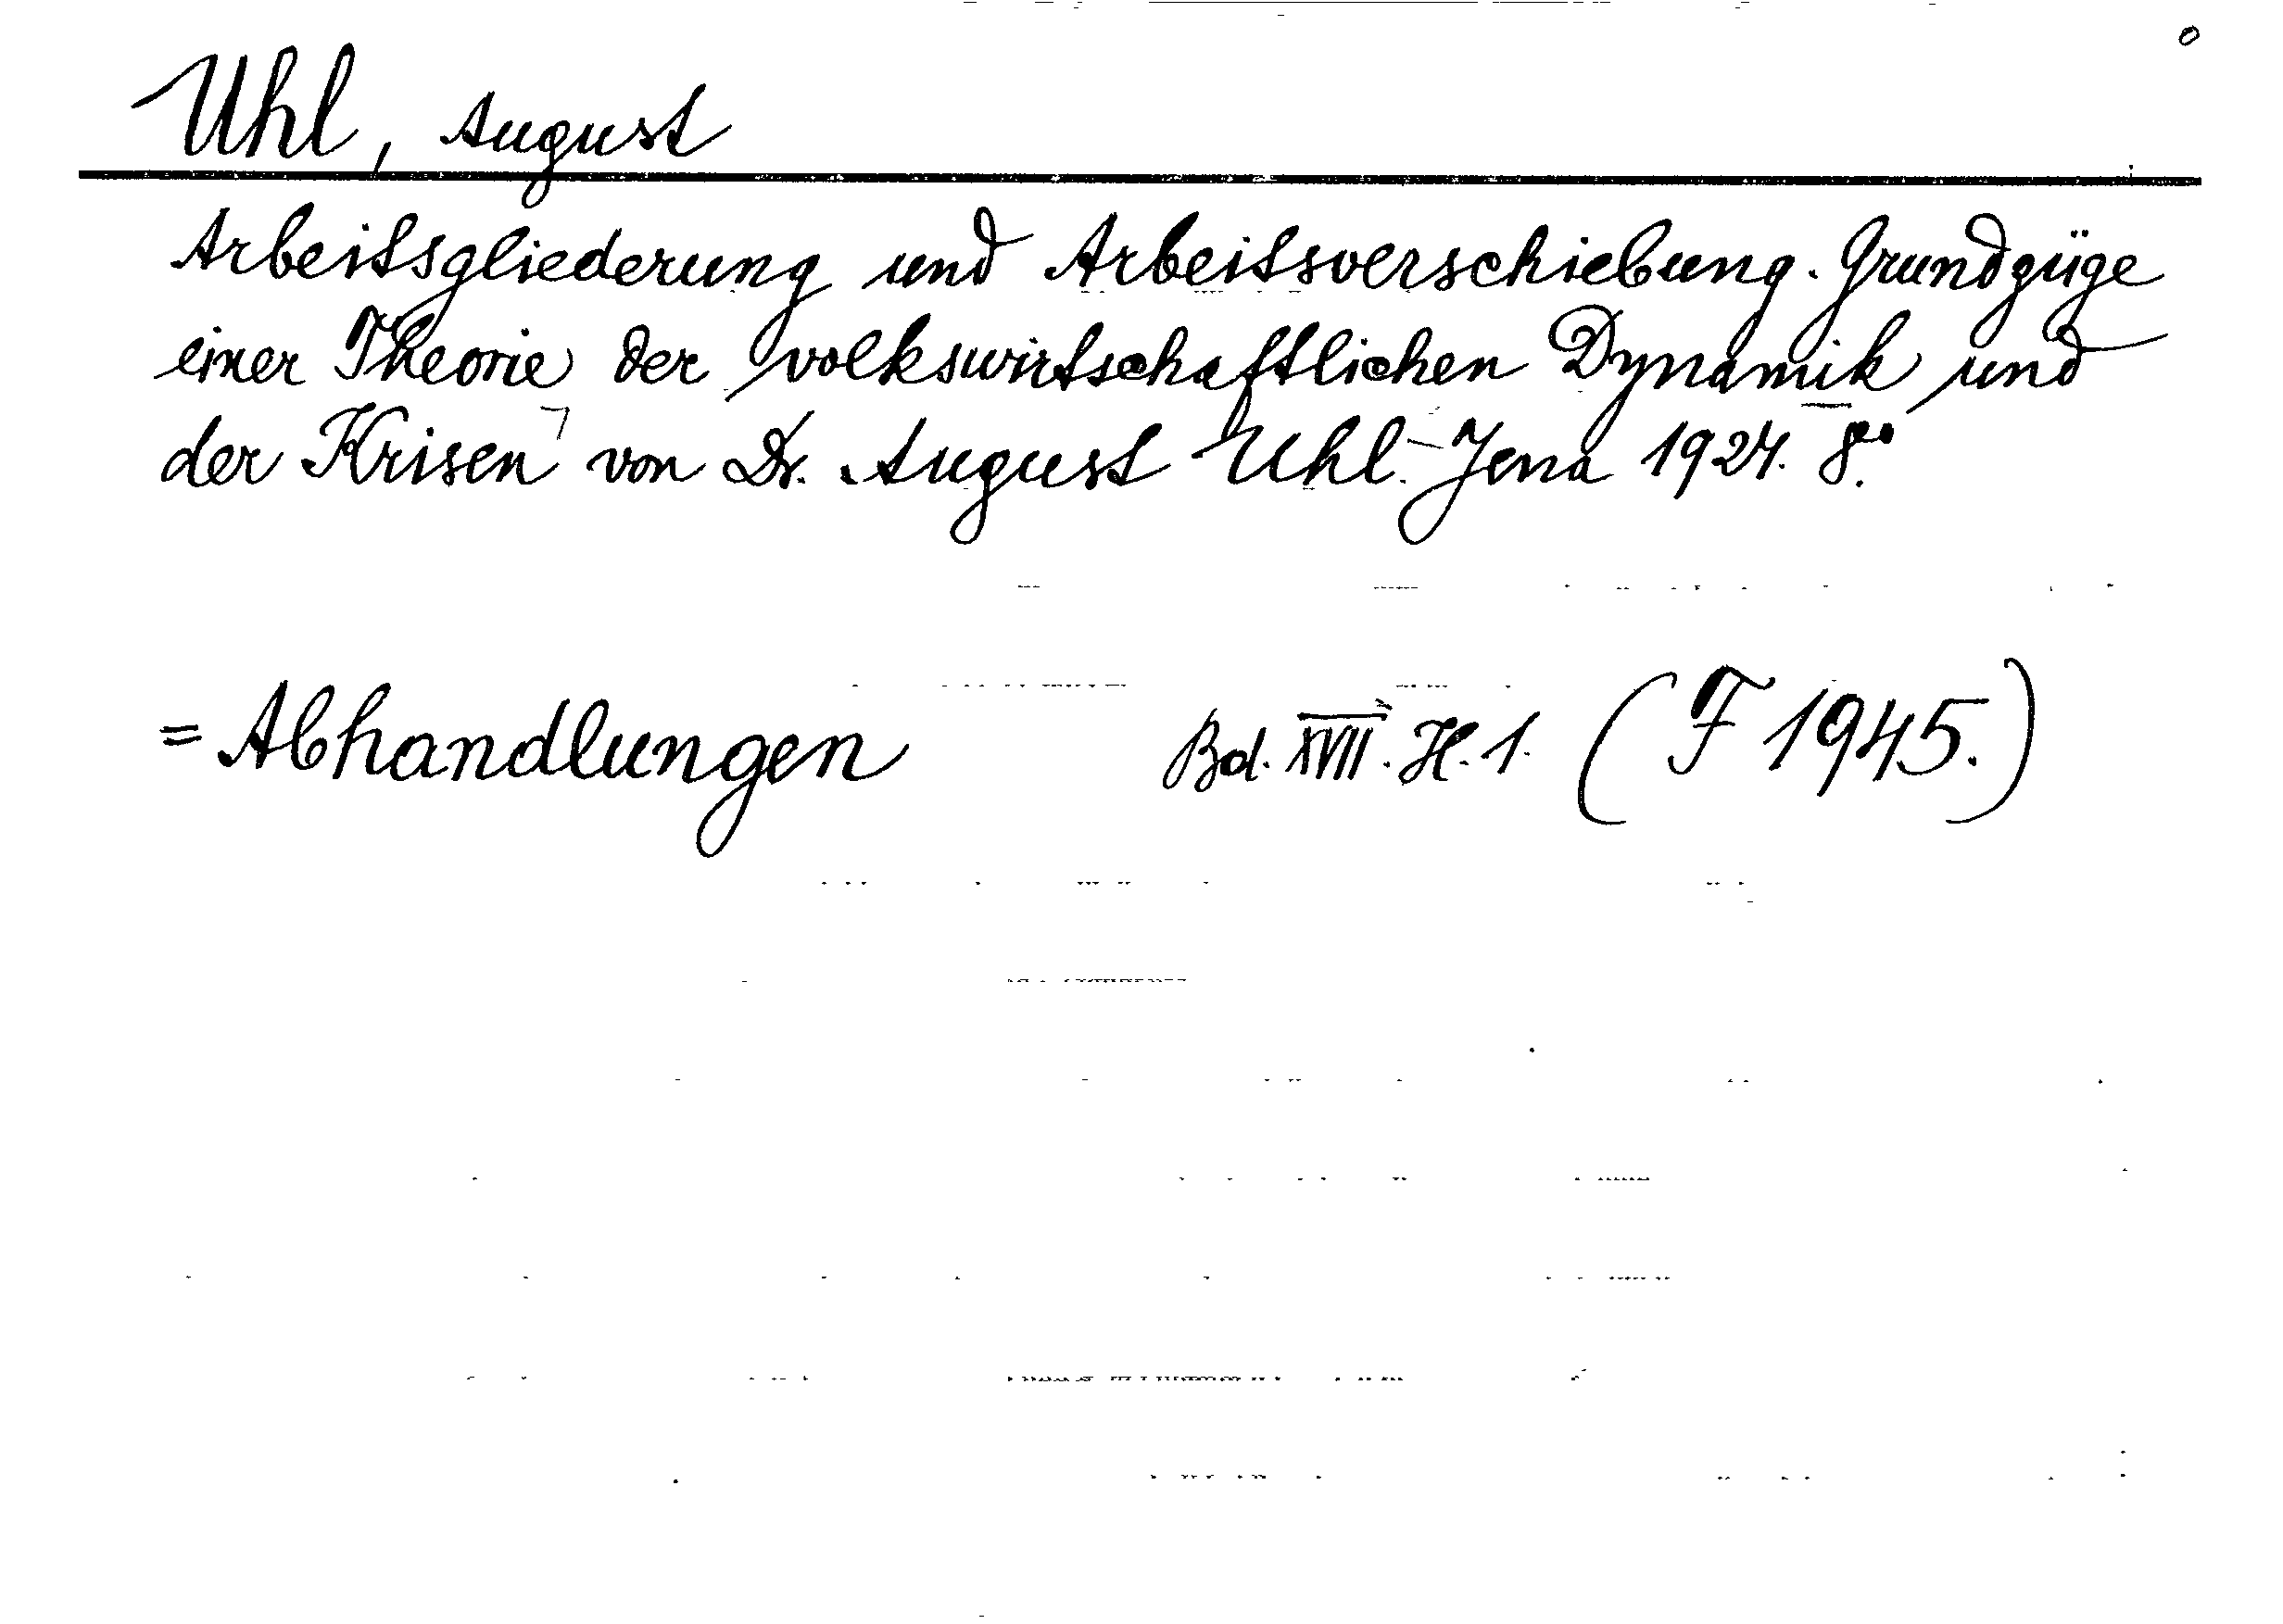 Uhl, August
Arbeitsgliederung und Arbeitsverschiebung. Grundzüge
einer Theorie der volkswirtschaftlichen Dynamik und
der Krisen von Dr. August Uhl. - Jena 1924. 8°.
= Abhandlungen Bd. XVII. H. 1. (F 1945.)